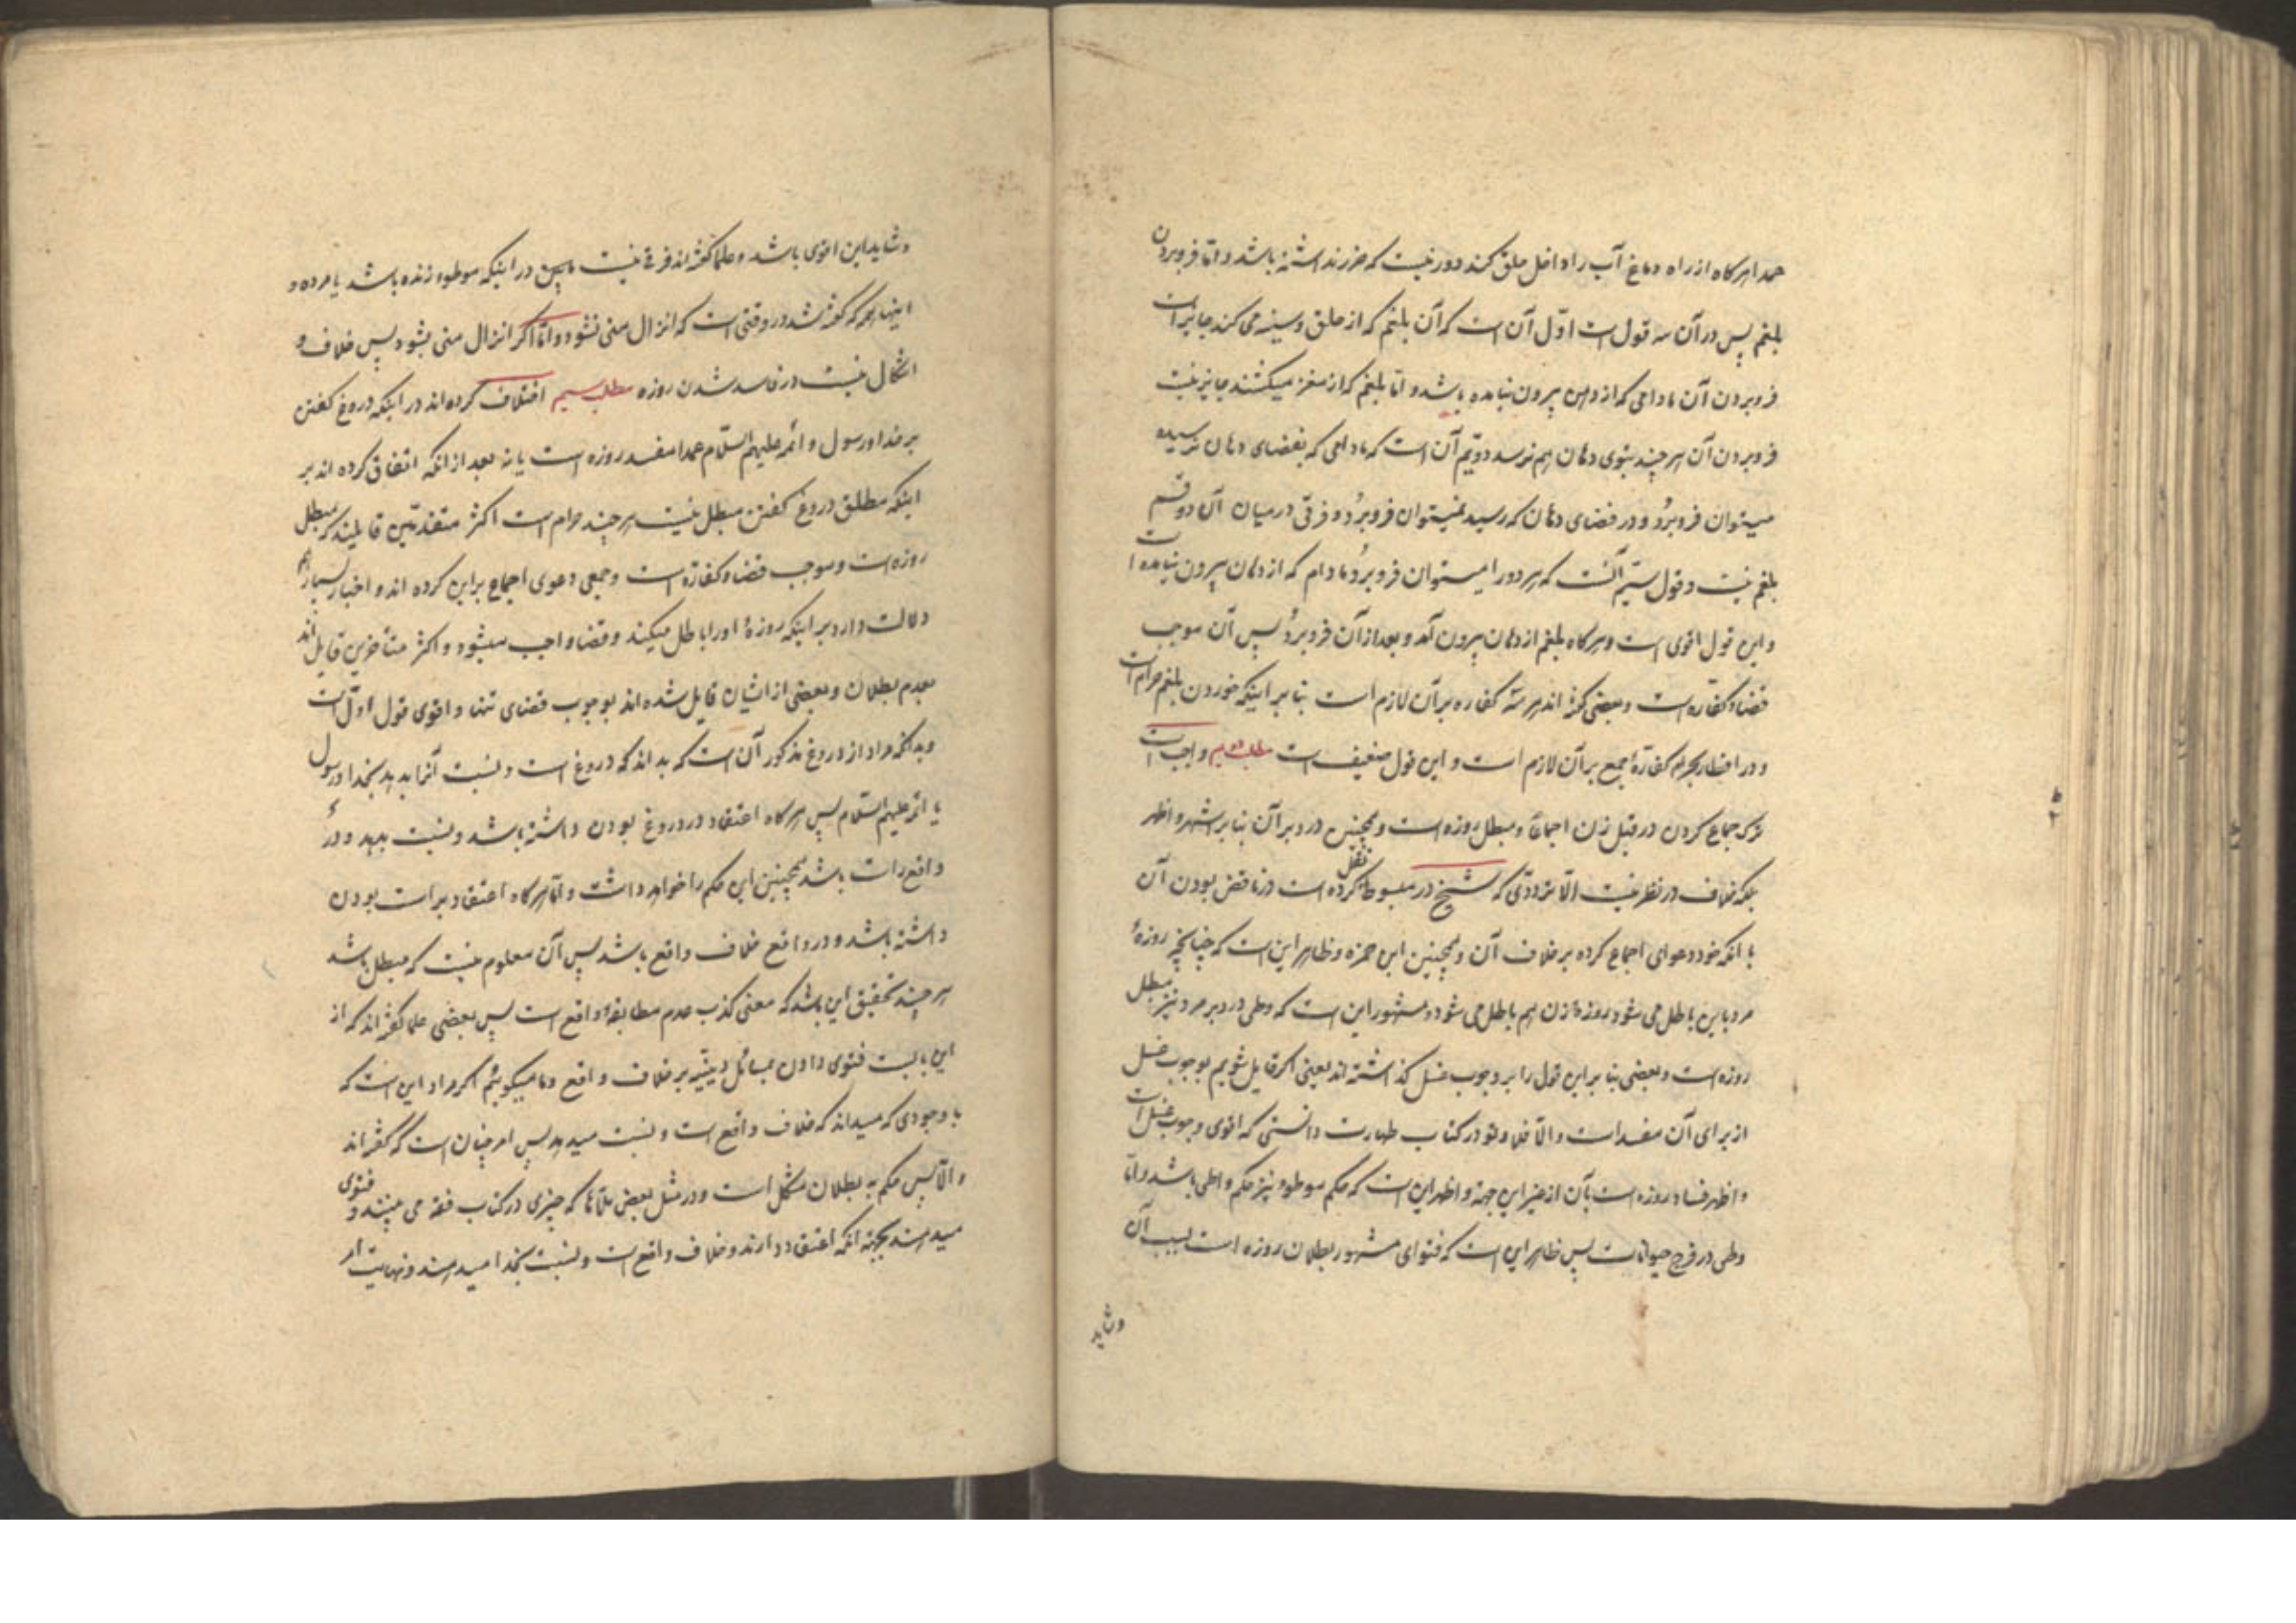 عمدا هرگاه از راه دماغ آب را داخل حلق کند دور نیست که ضرر نداشته باشد و اما فرو بردن
بلغم پس در آن سه قول است اول آن است که آن بلغم که از حلق و سینه می کند جایز است
فرو بردن آن مادامی که از دهن بیرون نیامده باشد و اما بلغم که از مغز میکشند جایز نیست
فرو بردن آن هر چند بتوی دهان هم نرسد دویم آن است که مادامی که بفضای دهان نرسیده
میتوان فرو برد و در فضای دهان که رسید نمیتوان فرو برد و فرقی در میان آن دو قسم
بلغم نیست و قول سیم آنست که هر دو را میتوان فرو برد مادام که از دهان بیرون نیامده است
و این قول اقوی است و هرگاه بلغم از دهان بیرون آمد و بعد از آن فرو برد پس آن موجب
قضا و کفاره است و بعضی گفته اند هر سه کفاره بر آن لازم است بنا بر اینکه خوردن بلغم حرام است
و در افطار بحرام کفارهٔ جمع بر آن لازم است و این قول ضعیف است مطلب دویم واجب است
ترک جماع کردن در قبل زن اجماعا و مبطل روزه است و همچنین در دبر آن بنا بر اشهر و اظهر
بلکه خلاف در نظر نیست الا ترددی که شیخ در مبسوط نقل کرده است در ناقض بودن آن
با آنکه خود دعوای اجماع کرده بر خلاف آن و همچنین ابن حمزه و ظاهر این است که چنانچه روزهٔ
مرد باین باطل می شود روزهٔ زن هم باطل می شود و مشهور این است که وطی در دبر مرد نیز مبطل
روزه است و بعضی بنا بر این قول را بر وجوب غسل گذاشته اند یعنی اگر قایل شویم بوجوب غسل
از برای آن مفسد است و الا فلا و تو در کتاب طهارت دانستی که اقوی وجوب غسل است
و اظهر فساد روزه است بآن از غیر این جهة و اظهر این است که حکم موطوء نیز حکم واطی باشد و اما
وطی در فرج حیوانات پس ظاهر این است که فتوای مشهور بطلان روزه است بسبب آن
و شاید
و شاید این اقوی باشد و علما گفته اند فرقی نیست مابین در اینکه موطوء زنده باشد یا مرده و
اینها همه که گفته شد در وقتی است که انزال منی نشود و اما اگر انزال منی بشود پس خلاف و
اشکال نیست در فاسد شدن روزه مطلب سیم اختلاف کرده اند در اینکه دروغ گفتن
بر خدا و رسول و ائمه علیهم السلام عمدا مفسد روزه است یا نه بعد از آنکه اتفاق کرده اند بر
اینکه مطلق دروغ گفتن مبطل نیست هر چند حرام است اکثر متقدمین قایلند که مبطل
روزه است و موجب قضا و کفاره است و جمعی دعوی اجماع بر این کرده اند و اخبار بسیار هم
دلالت دارد بر اینکه روزهٔ او را باطل میکند و قضا واجب میشود و اکثر متأخرین قایل اند
بعدم بطلان و بعضی از ایشان قایل شده اند بوجوب قضای تنها و اقوی قول اول است
و بدانکه مراد از دروغ مذکور آن است که بداند که دروغ است و نسبت آنرا بدهد بخدا و رسول
یا ائمه علیهم السلام پس هرگاه اعتقاد در دروغ بودن داشته باشد و نسبت بدهد و در
واقع راست باشد همچنین این حکم را خواهد داشت و اما هرگاه اعتقاد براست بودن
داشته باشد و در واقع خلاف واقع باشد پس آن معلوم نیست که مبطل باشد
هر چند تحقیق این باشد که معنی کذب عدم مطابقه واقع است پس بعضی علما گفته اند که از
این بابست فتوی دادن بمسائل دینیه بر خلاف واقع و ما میگوییم اگر مراد این است که
با وجودی که میداند که خلاف واقع است و نسبت میدهد پس امر چنان است که گفته اند
و الا پس حکم به بطلان مشکل است و در مثل بعض ملاها که چیزی در کتاب فقه می بینند و فتوی
میدهند بجهة آنکه اعتقاد دارند و خلاف واقع است و نسبت بخدا میدهند و نهایت امر